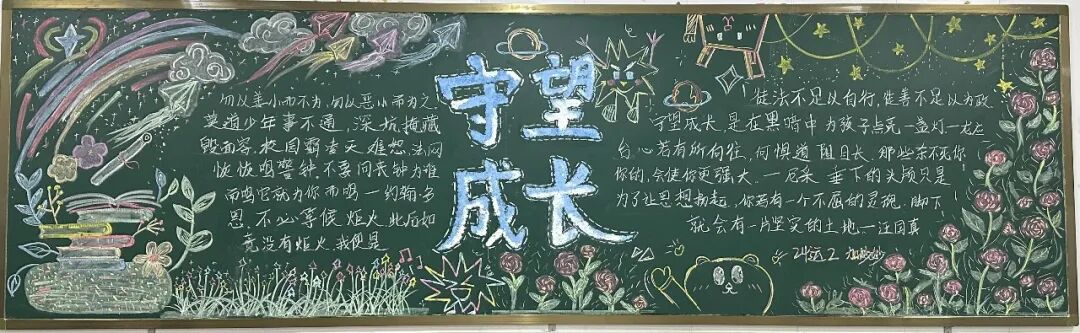 守望
成长
勿以善小而不为,勿以恶小而为之
莫道少年事不通,深坑掩藏
毁面容,校园霸凌天难恕,法网
恢恢鸣警钟,不要问丧钟为谁
而鸣它就为你而鸣一约翰·多
恩,不必等候炬火,此后如
竟没有炬火,我便是
徒法不足以自行,徒善不足以为政
守望成长,是在黑暗中为孩子点亮一盏灯一龙应
台心若有所向往,何惧道阻且长,那些杀不死你
你的,会使你更强大.一尼采 垂下的头颅只是
为了让思想扬起,你若有一个不屈的灵魂,脚下
就会有一片坚实的土地一汪国真